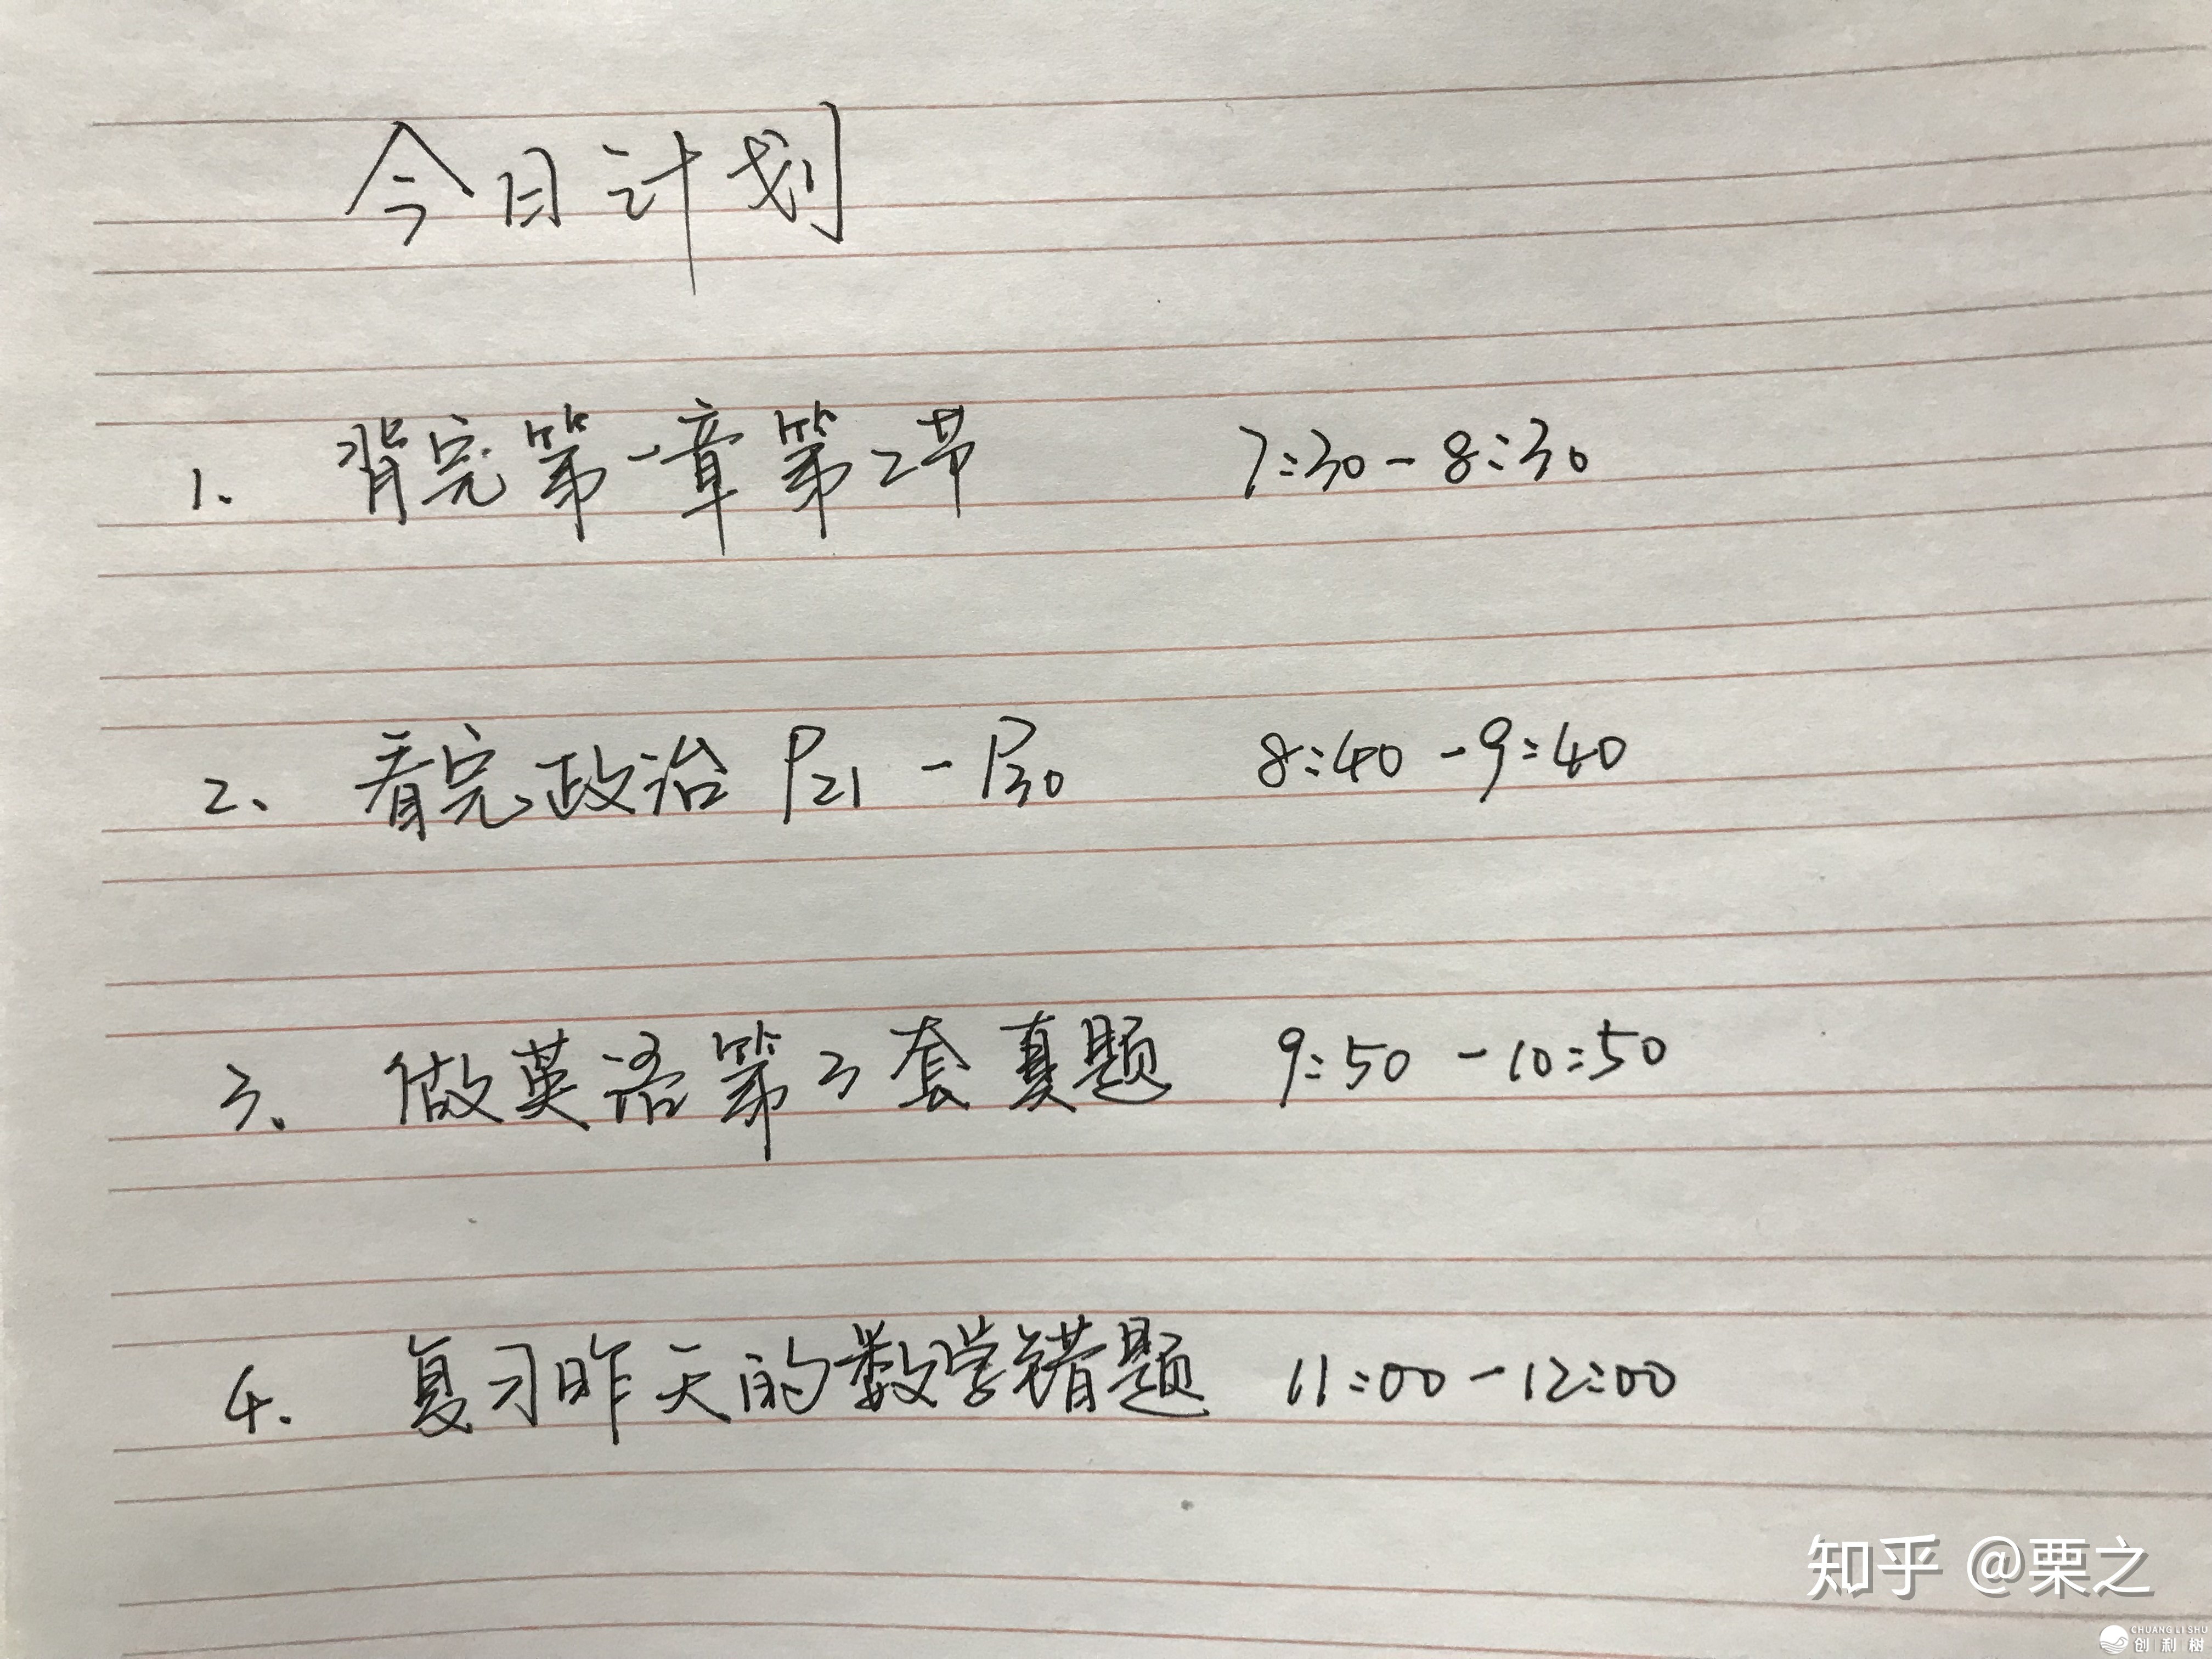 今日计划
1. 背完第一章第2节 7:30-8:30
2、看完政治 P21-P30 8:40-9:40
3、做英语第3套真题 9:50-10:50
4. 复习昨天的数学错题 11:00-12:00
知乎 @栗之
CHUANG LI SHU
创利树